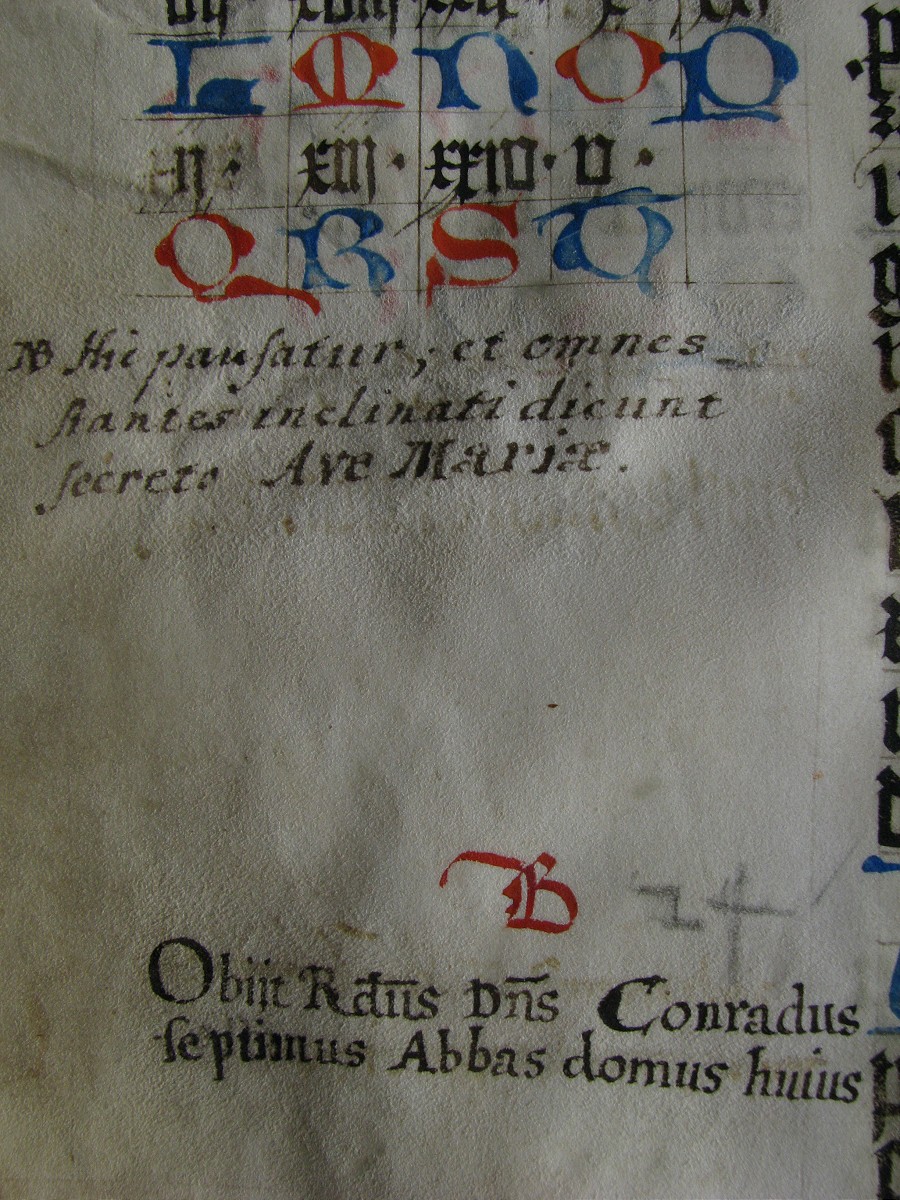 L M N O P
ij · xiij · xxiv · v ·
Q R S T
NB Hic pausatur, et omnes
stantes inclinati dicunt
secreto Ave Mariæ.
B 24
Obijt Rdūs Dn̄s Conradus
septimus Abbas domus huius